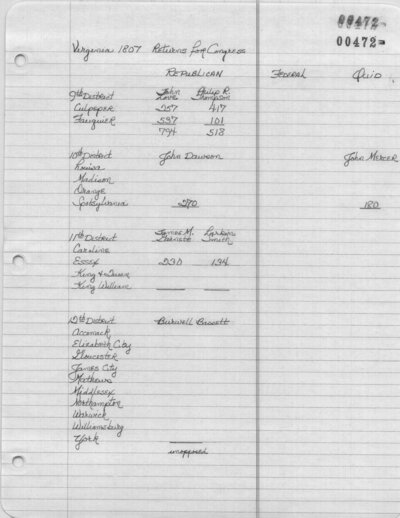 00472-
00472-
Virginia 1807 Returns for Congress
REPUBLICAN FEDERAL QUID
9th District John Love Philip R. Thompson
Culpeper 257 417
Fauquier 537 101
794 518
10th District John Dawson John Mercer
Louisa
Madison
Orange
Spotsylvania 270 180
11th District James M. Garnett Larkin Smith
Caroline
Essex 230 134
King & Queen
King William
12th District Burwell Bassett
Accomack
Elizabeth City
Gloucester
James City
Mathews
Middlesex
Northampton
Warwick
Williamsburg
York
unopposed